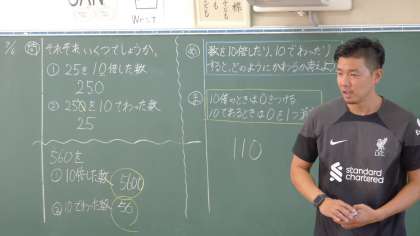 West
それぞれ、いくつでしょうか。
① 25を10倍した数
250
② 250を10でわった数
25
560を
① 10倍した数
5600
② 10でわった数
56
め
数を10倍したり、10でわったり
すると、どのようにかわるか考えよう
ま
10倍のときは0をつける
10でわるときは0を1つ
110
standard
chartered